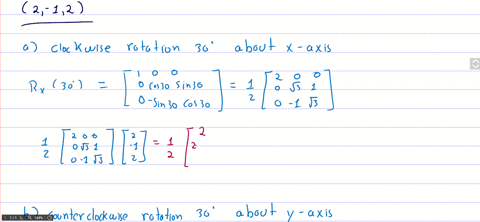 (2,-1,2)
a) clockwise rotation 30° about x-axis
Rx (30°) = [1 0 0; 0 cos30 sin30; 0 -sin30 cos30] = 1/2 [2 0 0; 0 √3 1; 0 -1 √3]
1/2 [2 0 0; 0 √3 1; 0 -1 √3] [2; -1; 2] = 1/2 [2 2
b) counterclockwise rotation 30° about y-axis